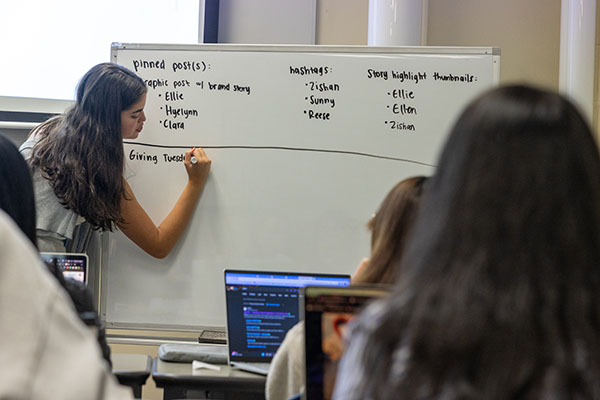 pinned post(s):
graphic post w/ brand story
• Ellie
• Hyelynn
• Clara
hashtags:
• Zishan
• Sunny
• Reese
Story highlight thumbnails:
• Ellie
• Ellen
• Zishan
Giving Tuesd